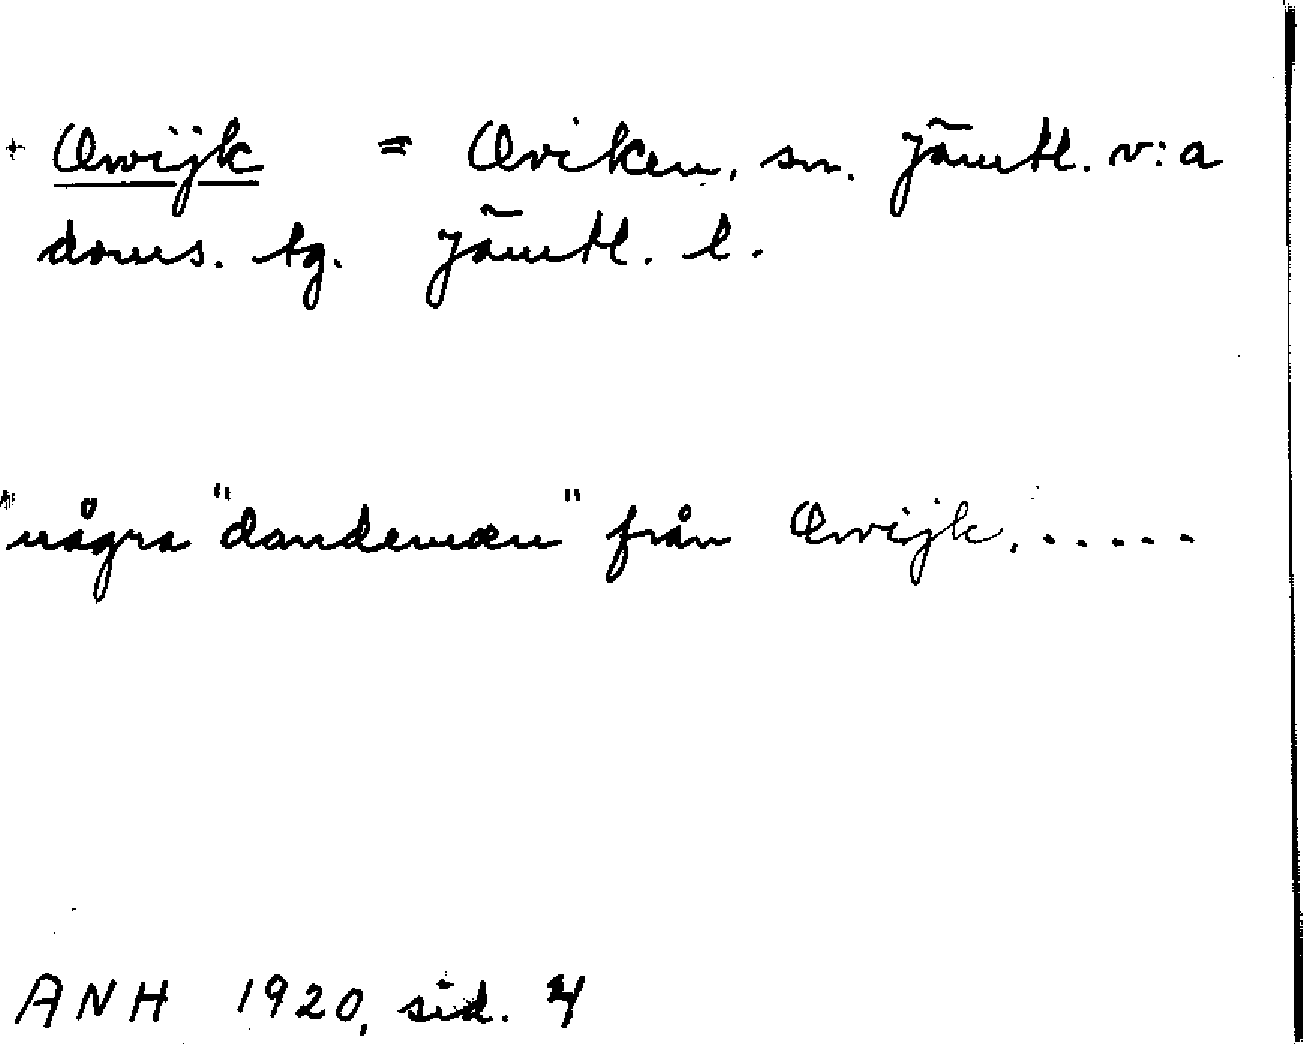 + Owijk = Oviken, sn. Jämtl. v:a
doms. tg. Jämtl. l.
"några "dandemæn" från Owijk. .....
ANH 1920, sid. 4